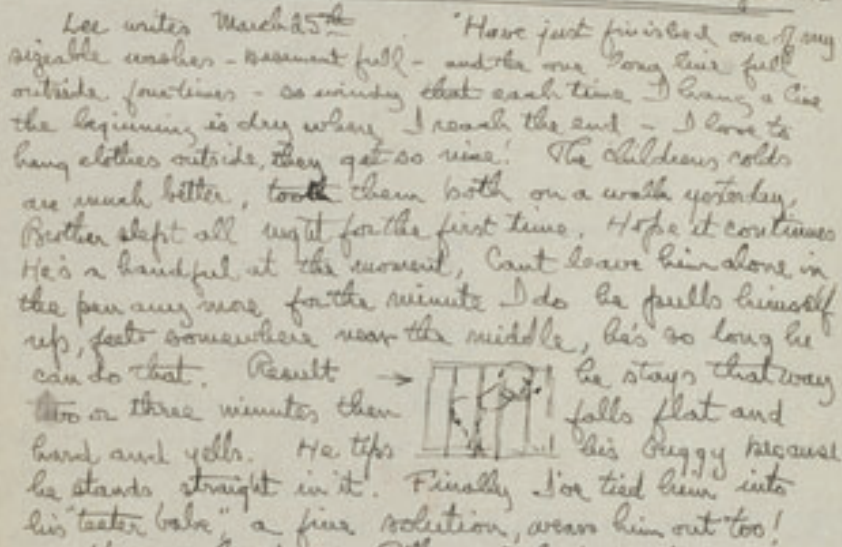 Lee writes March 25th "Have just finished one of my
sizeable washes - basement full - and the one long line full
outside four times - so windy that each time I hang a line
the beginning is dry when I reach the end - I love to
hang clothes outside, they get so nice! The childrens colds
are much better, took them both on a walk yesterday.
Brother slept all night for the first time. Hope it continues
He's a handful at the moment, Cant leave him alone in
the pen any more for the minute I do he pulls himself
up, feet somewhere near the middle, he's so long he
can do that. Result → he stays that way
two or three minutes then falls flat and
hard and yells. He tips his buggy because
he stands straight in it. Finally I've tied him into
his "teeter babe", a fine solution, wears him out too!